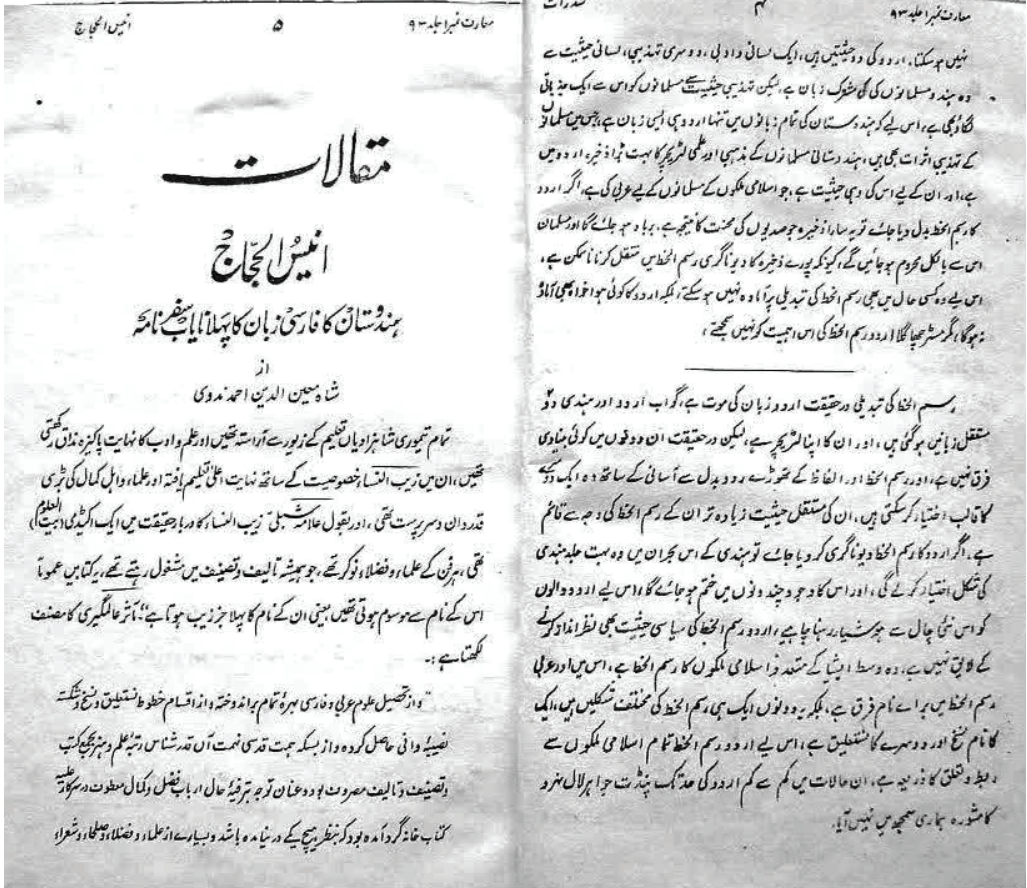 معارف نمبر ۱ جلد ۹۳
۴
شذرات
نہیں ہوسکتا، اردو کی دو حیثیتیں ہیں، ایک لسانی و ادبی، دوسری تہذیبی، لسانی حیثیت سے
وہ ہندو مسلمانوں کی مشترک زبان ہے، لیکن تہذیبی حیثیت سے مسلمانوں کو اس سے ایک جذباتی
لگاؤ بھی ہے، اس لیے کہ ہندوستان کی تمام زبانوں میں تنہا اردو ہی ایسی زبان ہے، جس میں مسلمانوں
کے تہذیبی اثرات بھی ہیں، ہندوستانی مسلمانوں کے مذہبی اور علمی لٹریچر کا بہت بڑا ذخیرہ اردو میں
ہے، اور ان کے لیے اس کی وہی حیثیت ہے، جو اسلامی ملکوں کے مسلمانوں کے لیے عربی کی ہے، اگر اردو
کا رسم الخط بدل دیا جائے تو یہ سارا ذخیرہ جو صدیوں کی محنت کا نتیجہ ہے، برباد ہو جائے گا اور مسلمان
اس سے بالکل محروم ہو جائیں گے، کیونکہ پورے ذخیرہ کا دیوناگری رسم الخط میں منتقل کرنا ناممکن ہے،
اس لیے وہ کسی حال میں بھی رسم الخط کی تبدیلی پر آمادہ نہیں ہو سکتے، بلکہ اردو کا کوئی ہوا خواہ بھی آمادہ
نہ ہوگا، مگر مسٹر چھاگلا اردو رسم الخط کی اس اہمیت کو نہیں سمجھتے،
رسم الخط کی تبدیلی درحقیقت اردو زبان کی موت ہے، گو اب اردو اور ہندی دو
مستقل زبانیں ہوگئی ہیں، اور ان کا اپنا لٹریچر ہے، لیکن درحقیقت ان دونوں میں کوئی بنیادی
فرق نہیں ہے، اور رسم الخط اور الفاظ کے تھوڑے رد و بدل سے آسانی کے ساتھ وہ ایک دوسرے
کا قالب اختیار کرسکتی ہیں، ان کی مستقل حیثیت زیادہ تر ان کے رسم الخط کی وجہ سے قائم
ہے، اگر اردو کا رسم الخط دیوناگری کر دیا جائے تو ہندی کے اس بحران میں وہ بہت جلد ہندی
کی شکل اختیار کرلے گی، اور اس کا وجود چند دنوں میں ختم ہو جائے گا، اس لیے اردو والوں
کو اس نئی چال سے ہوشیار رہنا چاہیے، اردو رسم الخط کی سیاسی حیثیت بھی نظر انداز کرنے
کے لائق نہیں ہے، وہ وسط ایشیا کے متعدد اسلامی ملکوں کا رسم الخط ہے، اس میں اور عربی
رسم الخط میں برائے نام فرق ہے، بلکہ یہ دونوں ایک ہی رسم الخط کی مختلف شکلیں ہیں، ایک
کا نام نسخ اور دوسرے کا نستعلیق ہے، اس لیے اردو رسم الخط تمام اسلامی ملکوں سے
ربط و تعلق کا ذریعہ ہے، ان حالات میں کم سے کم اردو کی حد تک پنڈت جواہر لال نہرو
کا مشورہ ہماری سمجھ میں نہیں آیا۔
معارف نمبر ۱ جلد ۹۳
۵
انیس الحجاج
مقالات
انیس الحجّاج
ہندوستان کا فارسی زبان کا پہلا نایاب سفر نامہ
از
شاہ معین الدین احمد ندوی
تمام تیموری شاہزادیاں تعلیم کے زیور سے آراستہ تھیں اور علم و ادب کا نہایت پاکیزہ مذاق رکھتی
تھیں، ان میں زیب النساء خصوصیت کے ساتھ نہایت اعلیٰ تعلیم یافتہ اور علماء و اہل کمال کی بڑی
قدردان و سرپرست تھی، اور بقول علامہ شبلی زیب النساء کا دربار حقیقت میں ایک اکیڈمی (بیت العلوم)
تھی، ہر فن کے علماء و فضلاء نوکر تھے، جو ہمیشہ تالیف و تصنیف میں مشغول رہتے تھے، یہ کتابیں عموماً
اس کے نام سے موسوم ہوتی تھیں، یعنی ان کے نام کا پہلا جز زیب ہوتا ہے" مآثر عالمگیری کا مصنف
لکھتا ہے :۔
"و از تحصیل علوم عربی و فارسی بہرۂ تمام براندوختہ و از اقسام خطوط نستعلیق و نسخ و شکستہ
نصیبۂ وافی حاصل کردہ و از بسکہ ہمت قدسی نہمت آں قدر شناس رتبۂ علم و ہنر بجمع کتب
و تصنیف و تالیف مصروف بود و عنان توجہ بترفیہ حال ارباب فضل و کمال معطوف در سرکار علیہ
کتاب خانہ گرد آمدہ بود کہ بنظر ہیچ یکے در نیامدہ باشد و بسیارے از علماء و فضلاء و صلحاء و شعراء